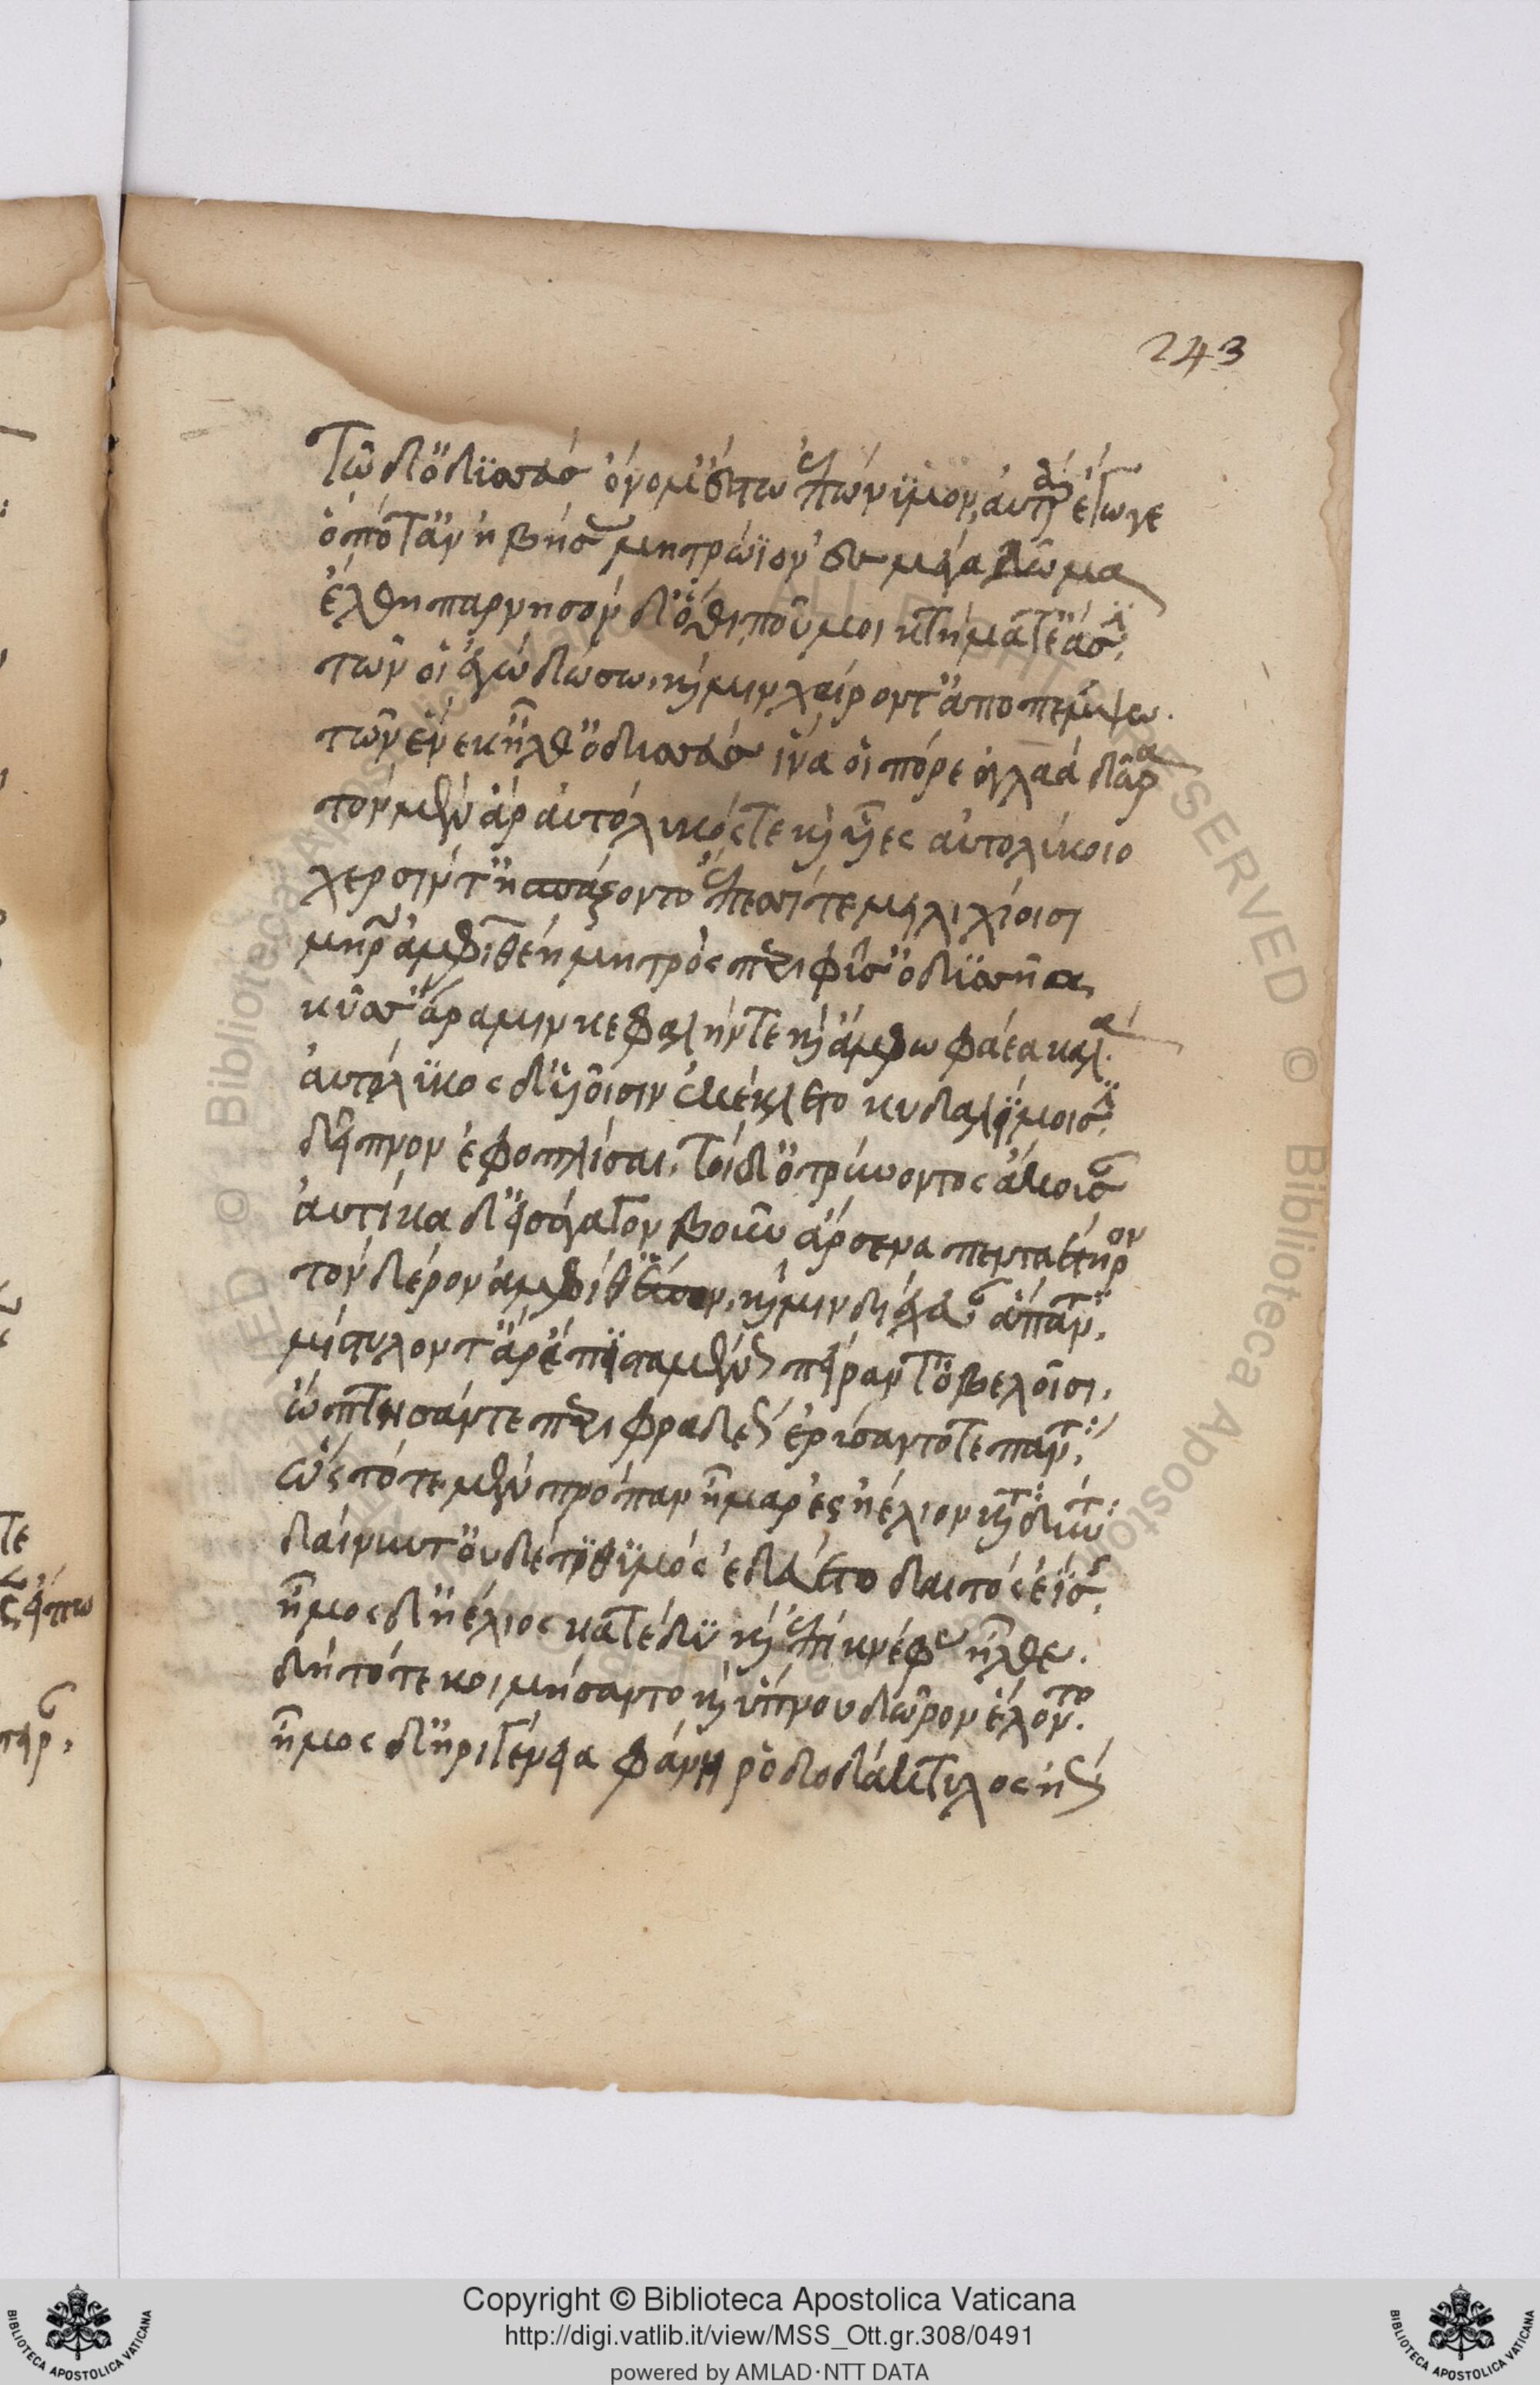 243
τῶ δ' ὀδϋσεὺς ὄνομ' ἔστω ἐπώνϋμον, αὐτὰρ ἔγωγε
ὁππότ' ἂν ἡβήσας μητρώϊον ἐς μέγα δῶμα
ἔλθη παρνησὸν δ' ὅθι ποῦ μοι κτήματ' ἔασι,
τῶν οἱ ἐγὼ δώσω, καί μιν χαίροντ' ἀποπέμψω.
τῶν ἕνεκ' ἦλθ' ὀδυσεὺς ἵνα οἱ πόρε ἀγλαὰ δῶρα
τὸν μὲν ἂρ αὐτόλυκός τε καὶ υἱέες αὐτολύκοιο
χερσίν τ' ἠσπάζοντο ἔπεσί τε μειλιχίοισι
μήτηρ ἀμφιθέη μητρὸς περιφῦσ' ὀδϋσῆα,
κύσσ' ἄρα μιν κεφαλήν τε καὶ ἄμφω φάεα καλά.
αὐτόλϋκος δ' υἱοῖσιν ἐκέκλετο κυδαλίμοισι,
δεῖπνον ἐφοπλίσαι, τοὶ δ' ὀτρύνοντος ἄκουσαν
αὐτίκα δ' εἰσάγαγον βοῦν ἄρσενα πενταέτηρον
τὸν δέρον ἀμφί θ' ἕπον, καί μιν διέχευαν ἅπαντα,
μίστυλόν τ' ἄρ' ἐπϊσταμένως πεῖράν τ' ὀβελοῖσι,
ὤπτησάν τε περιφραδέως ἐρύσαντό τε πάντα,
ὣς τότε μὲν πρόπαν ἦμαρ ἐς ἠέλιον καταδύντα
δαίνυντ' οὐδέ τϊ θϋμὸς ἐδεύετο δαιτὸς ἐΐσης,
ἦμος δ' ἠέλιος κατέδϋ καὶ ἐπὶ κνέφας ἦλθε.
δὴ τότε κοιμήσαντο καὶ ὕπνου δῶρον ἕλοντο.
ἦμος δ' ἠριγένεια φάνη ῥοδοδάκτυλος ἠώς
Copyright © Biblioteca Apostolica Vaticana
http://digi.vatlib.it/view/MSS_Ott.gr.308/0491
powered by AMLAD·NTT DATA